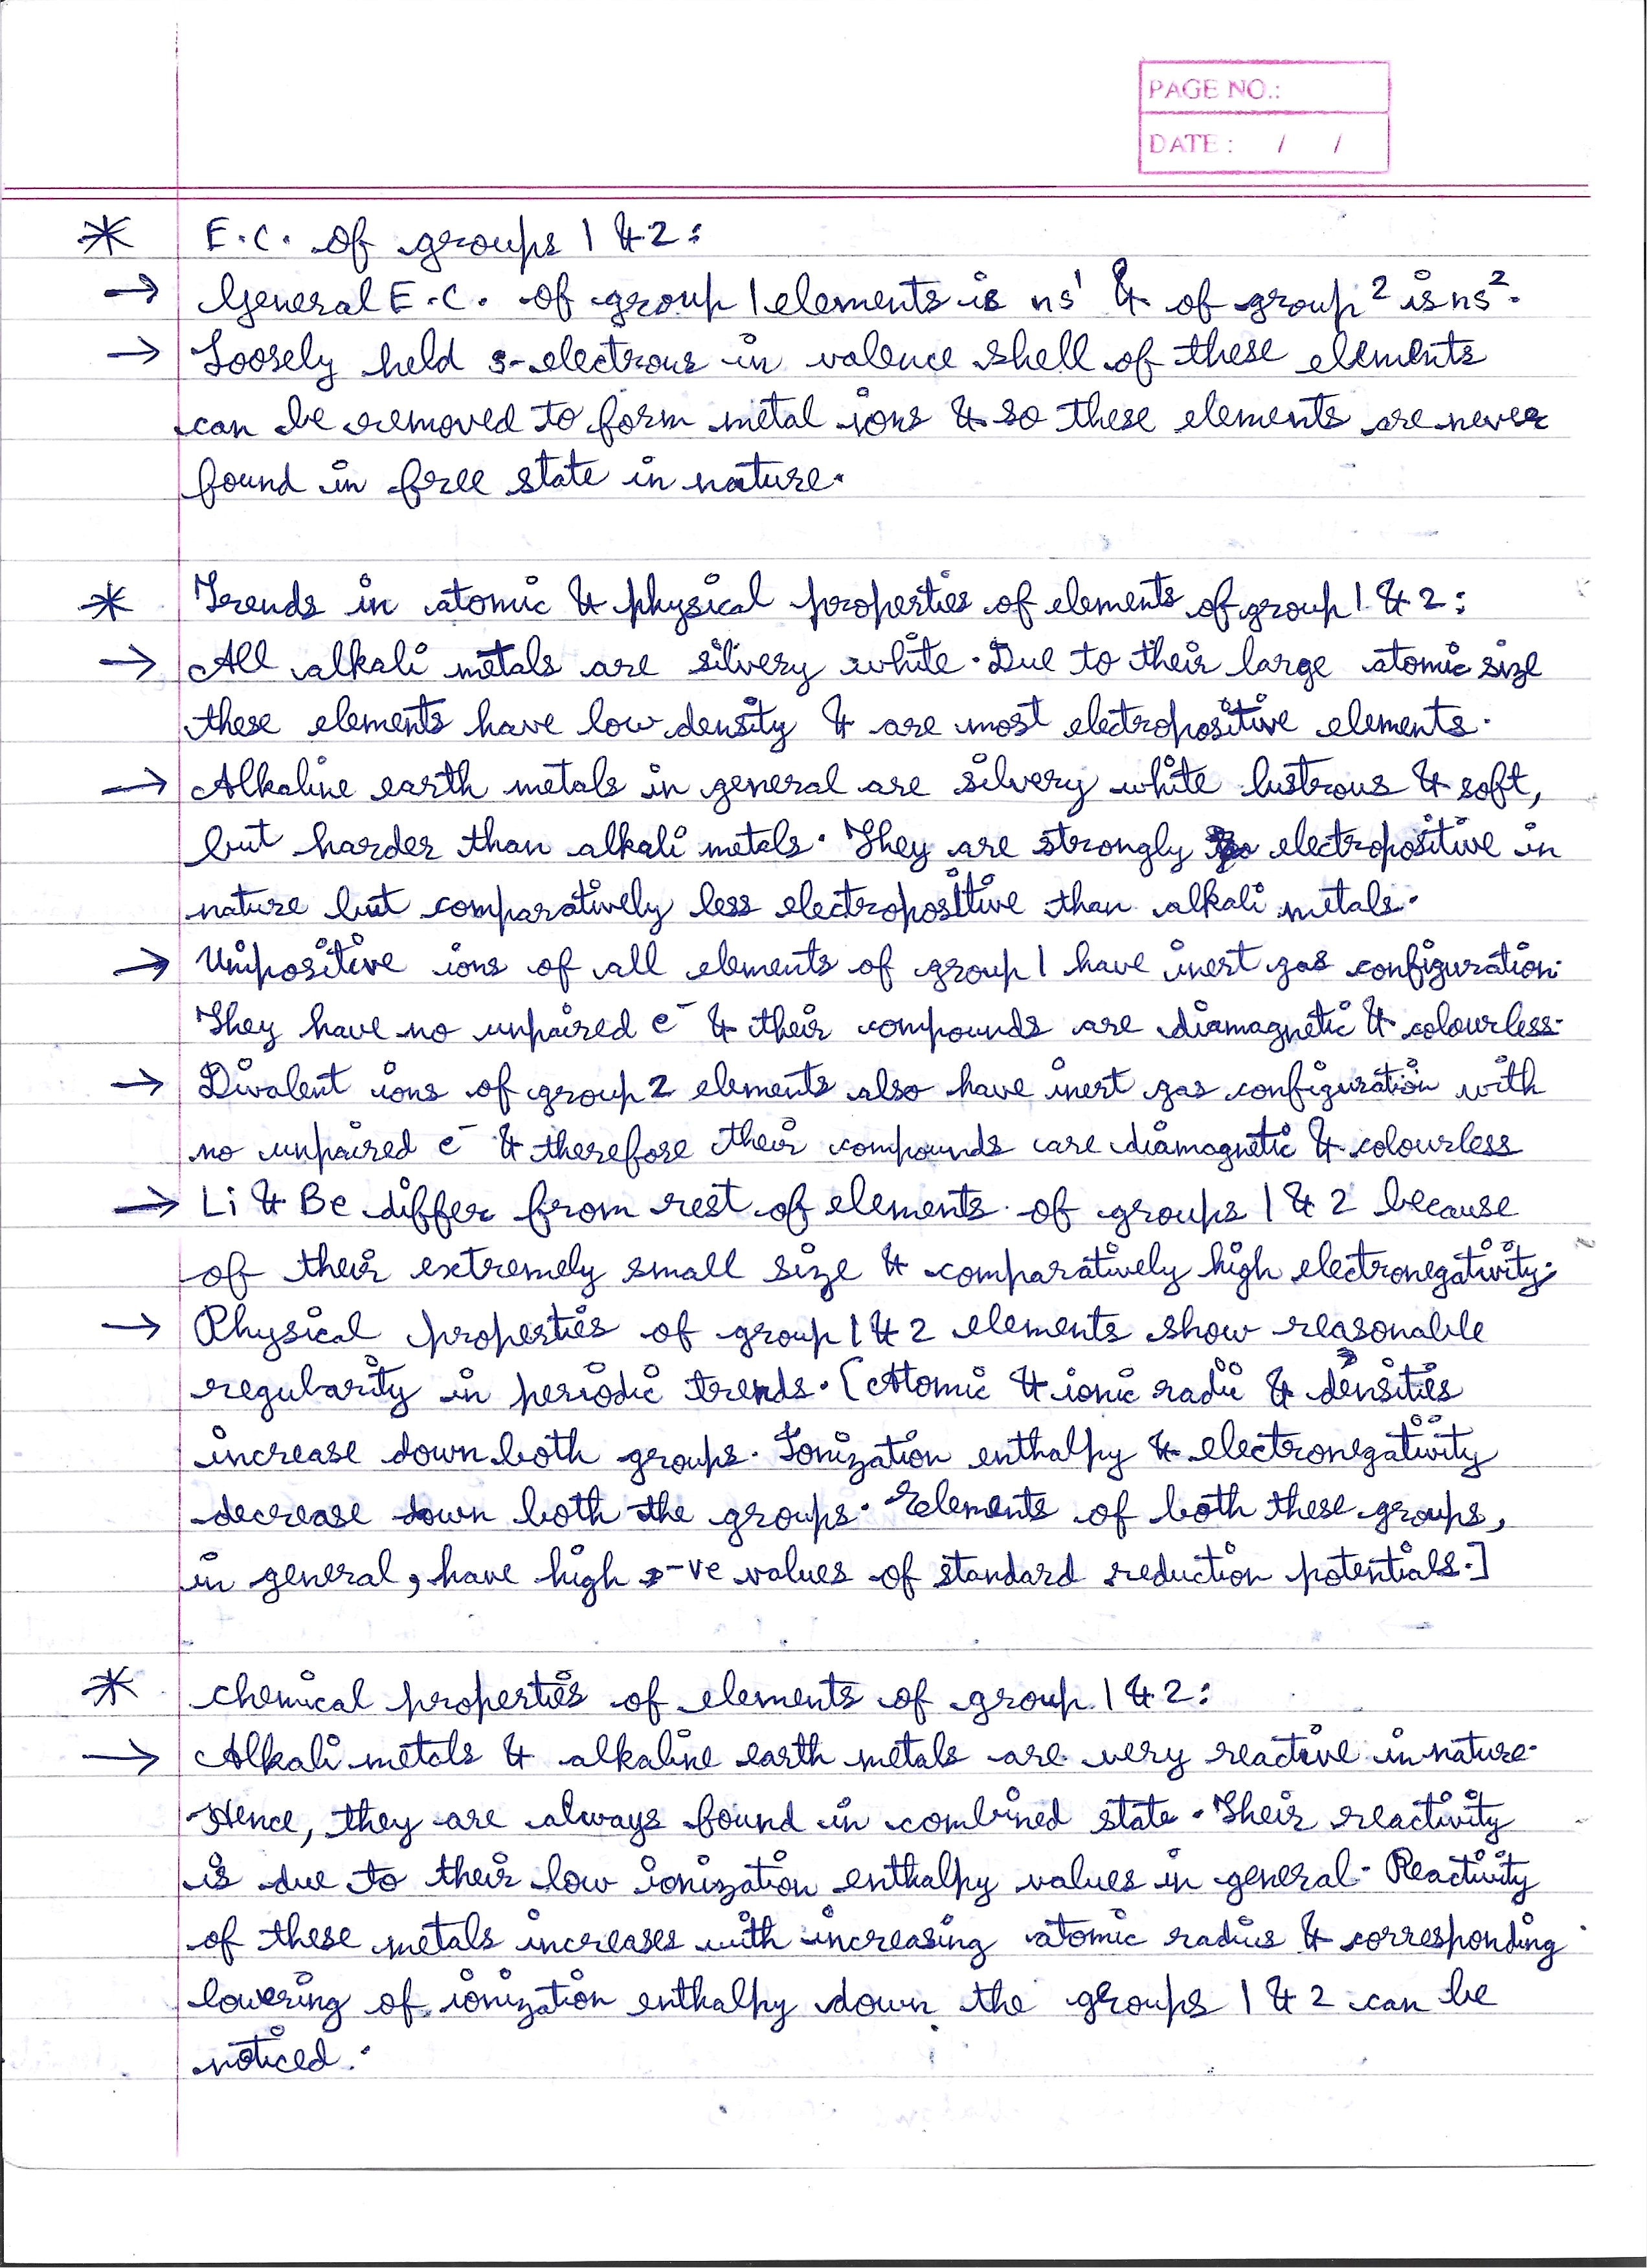 PAGE NO.:
DATE : / /
* E.C. of groups 1 & 2:
→ General E.C. of group 1 elements is ns¹ & of group 2 is ns².
→ Loosely held s-electrons in valence shell of these elements
can be removed to form metal ions & so these elements are never
found in free state in nature.
* Trends in atomic & physical properties of elements of group 1 & 2:
→ All alkali metals are silvery white. Due to their large atomic size
these elements have low density & are most electropositive elements.
→ Alkaline earth metals in general are silvery white lustrous & soft,
but harder than alkali metals. They are strongly electropositive in
nature but comparatively less electropositive than alkali metals.
→ Unipositive ions of all elements of group 1 have inert gas configuration.
They have no unpaired e⁻ & their compounds are diamagnetic & colourless.
→ Divalent ions of group 2 elements also have inert gas configuration with
no unpaired e⁻ & therefore their compounds are diamagnetic & colourless
→ Li & Be differ from rest of elements of groups 1 & 2 because
of their extremely small size & comparatively high electronegativity.
→ Physical properties of group 1 & 2 elements show reasonable
regularity in periodic trends. [Atomic & ionic radii & densities
increase down both groups. Ionization enthalpy & electronegativity
decrease down both the groups. Elements of both these groups,
in general, have high -ve values of standard reduction potentials.]
* Chemical properties of elements of group 1 & 2:
→ Alkali metals & alkaline earth metals are very reactive in nature.
Hence, they are always found in combined state. Their reactivity
is due to their low ionization enthalpy values in general. Reactivity
of these metals increases with increasing atomic radius & corresponding
lowering of ionization enthalpy down the groups 1 & 2 can be
noticed.